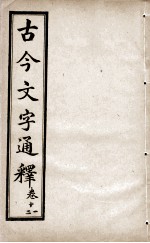 古今文字通釋
卷十一